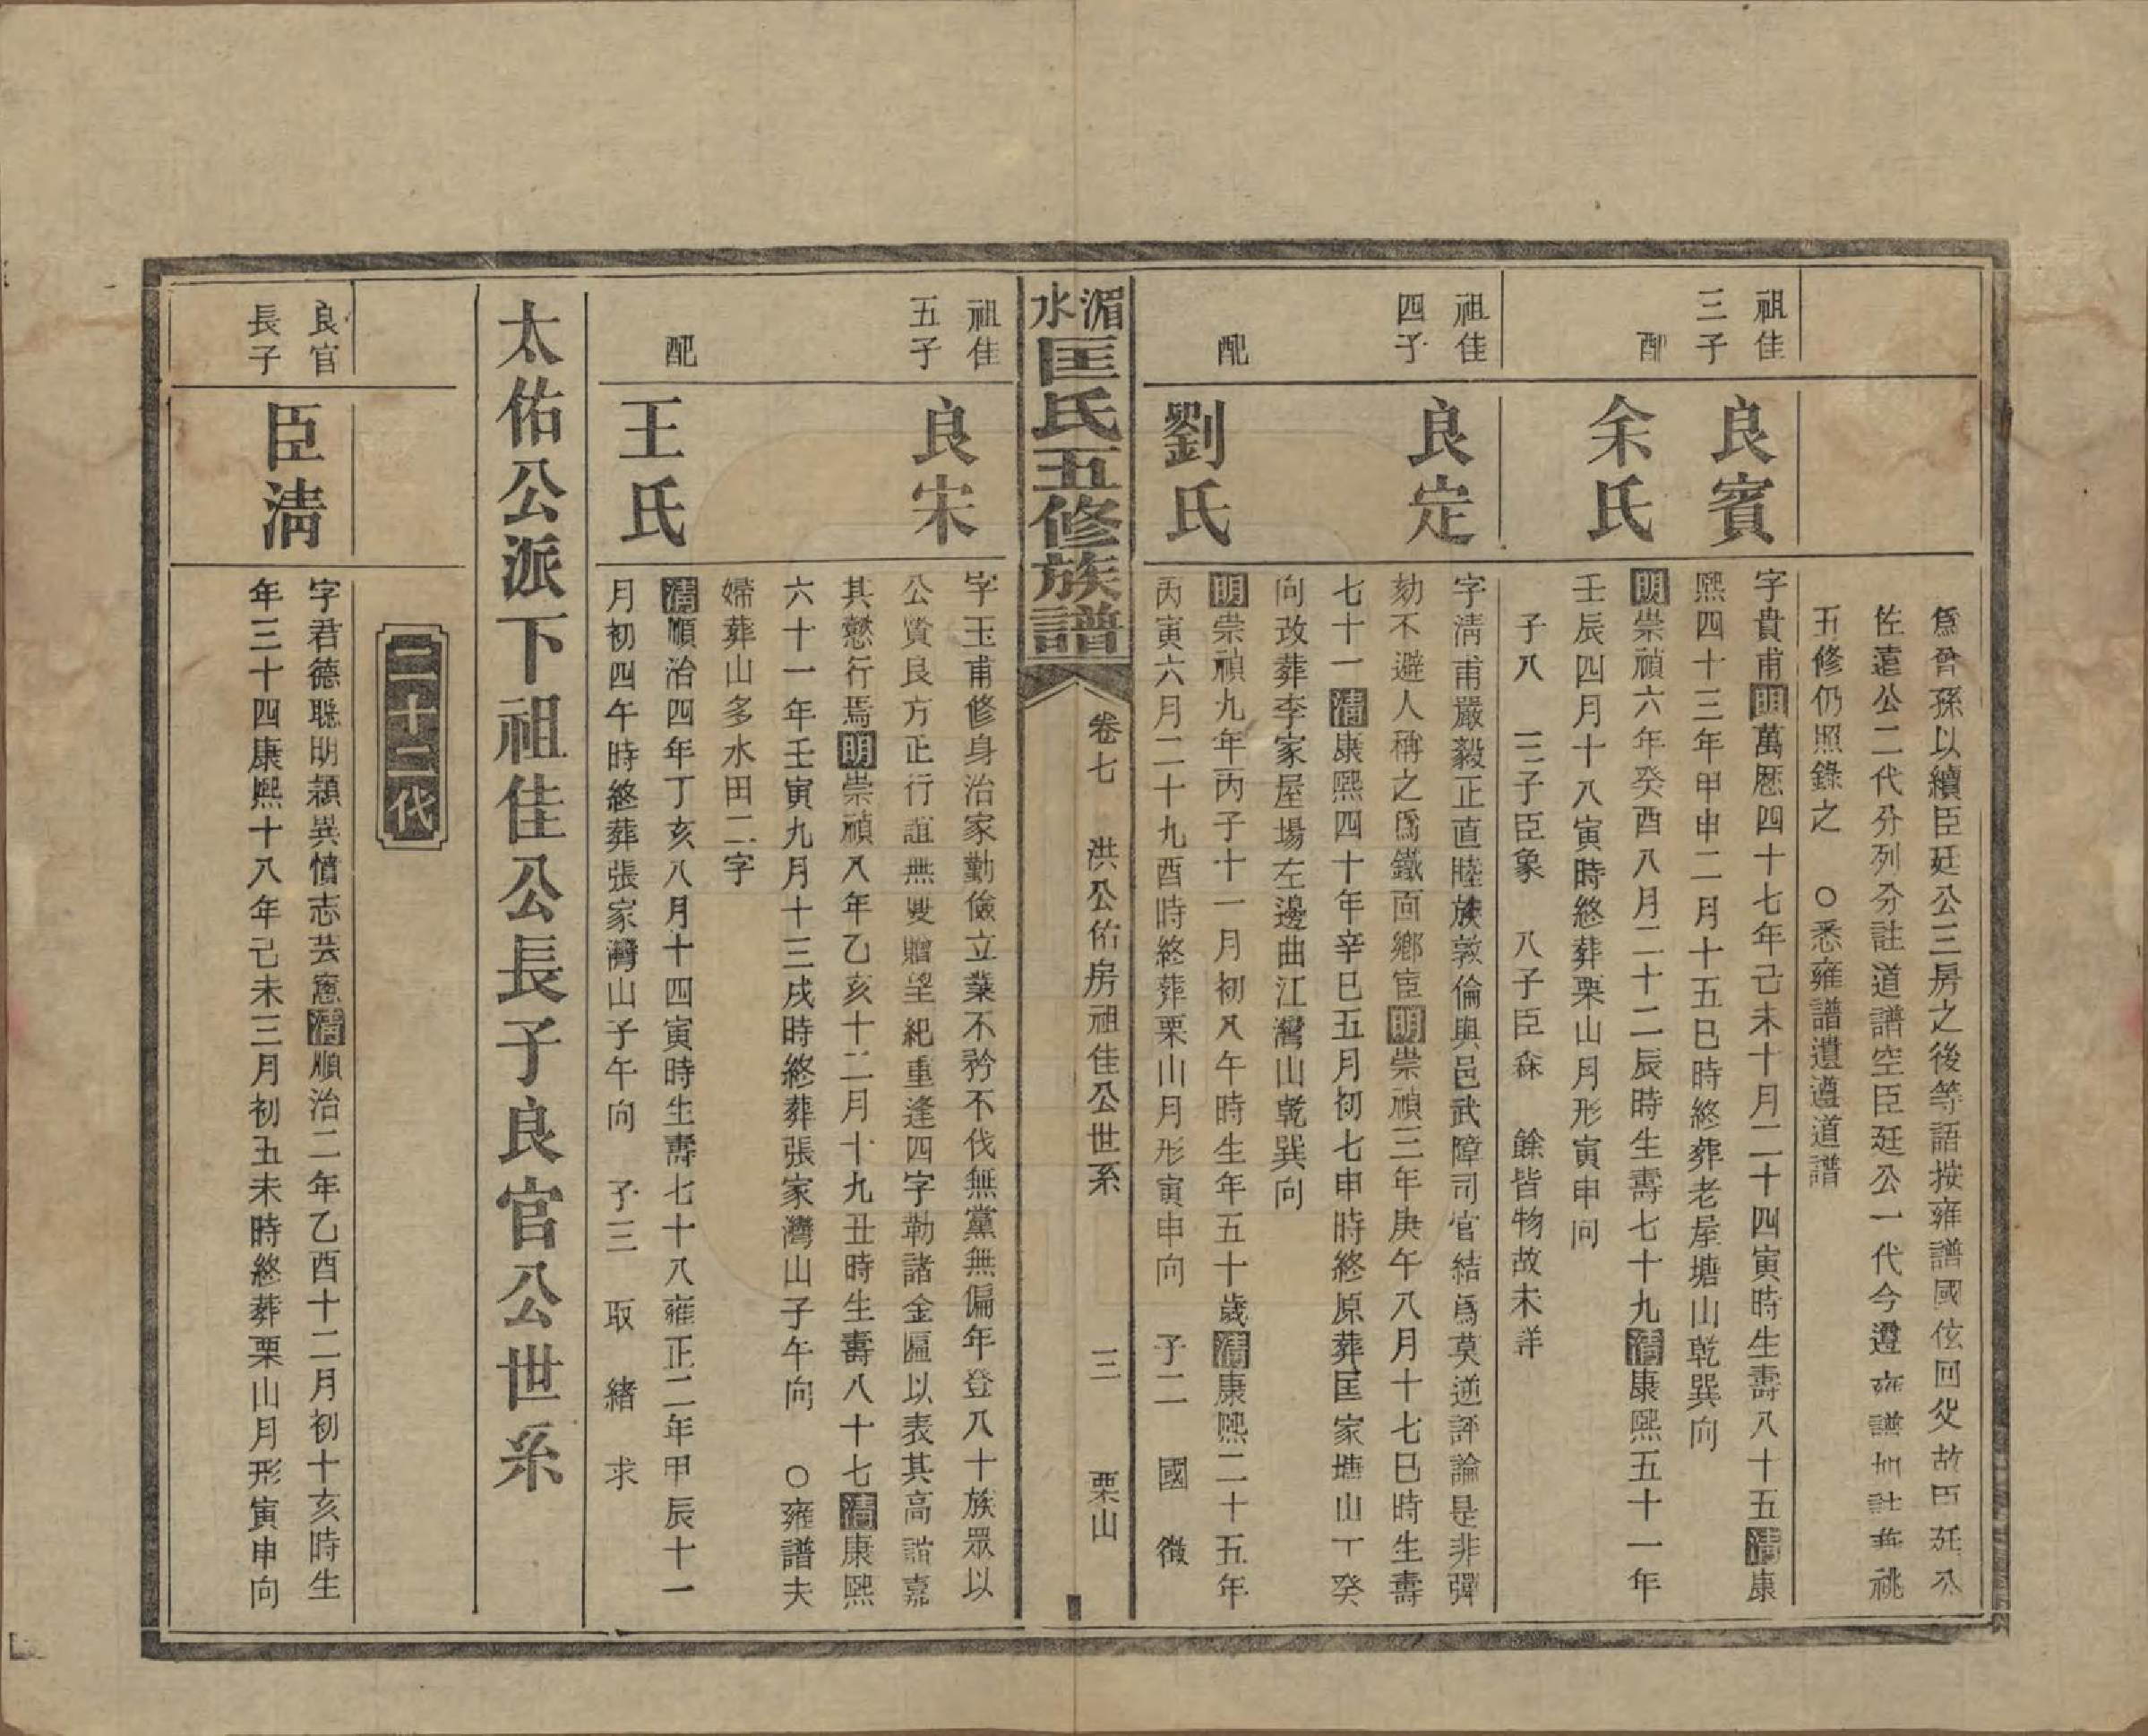 爲曾孫以續臣廷公三房之後等語按雍譜國伭回父故臣廷公
佐遠公二代分列分註道譜空臣廷公一代今遵雍譜加註
五修仍照錄之　○悉雍譜遺遵道譜
祖佳
三子
良賓
字貴甫明萬歷四十七年己未十月二十四寅時生壽八十五清康
熙四十三年甲申二月十五巳時終葬老屋塘山乾巽向
配
余氏
明崇禎六年癸酉八月二十二辰時生壽七十九清康熙五十一年
壬辰四月十八寅時終葬栗山月形寅申向
子八　三子臣象　八子臣森　餘皆物故未詳
祖佳
四子
良定
字淸甫嚴毅正直睦族敦倫與邑武障司官結爲莫逆評論是非彈
劾不避人稱之爲鐵面鄉宦明崇禎三年庚午八月十七巳時生壽
七十一清康熙四十年辛巳五月初七申時終原葬匡家塘山丁癸
向改葬李家屋場左邊曲江灣山乾巽向
配
劉氏
明崇禎九年丙子十一月初八午時生年五十歲清康熙二十五年
丙寅六月二十九酉時終葬栗山月形寅申向　子二　國　徵
湄水匡氏五修族譜
卷七　洪公佑房祖佳公世系　三　栗山
祖佳
五子
良宋
字玉甫修身治家勤儉立業不矜不伐無黨無偏年登八十族眾以
公賢良方正行誼無雙贈望紀重逢四字勒諸金匾以表其高誼嘉
其懿行焉明崇禎八年乙亥十二月十九丑時生壽八十七清康熙
六十一年壬寅九月十三戌時終葬張家灣山子午向　○雍譜夫
婦葬山多水田二字
配
王氏
清順治四年丁亥八月十四寅時生壽七十八雍正二年甲辰十一
月初四午時終葬張家灣山子午向　子三　取　緒　求
太佑公派下祖佳公長子良官公世系
二十二代
良官
長子
臣淸
字君德聰明穎異憤志芸窻清順治二年乙酉十二月初十亥時生
年三十四康熙十八年己未三月初五未時終葬栗山月形寅申向